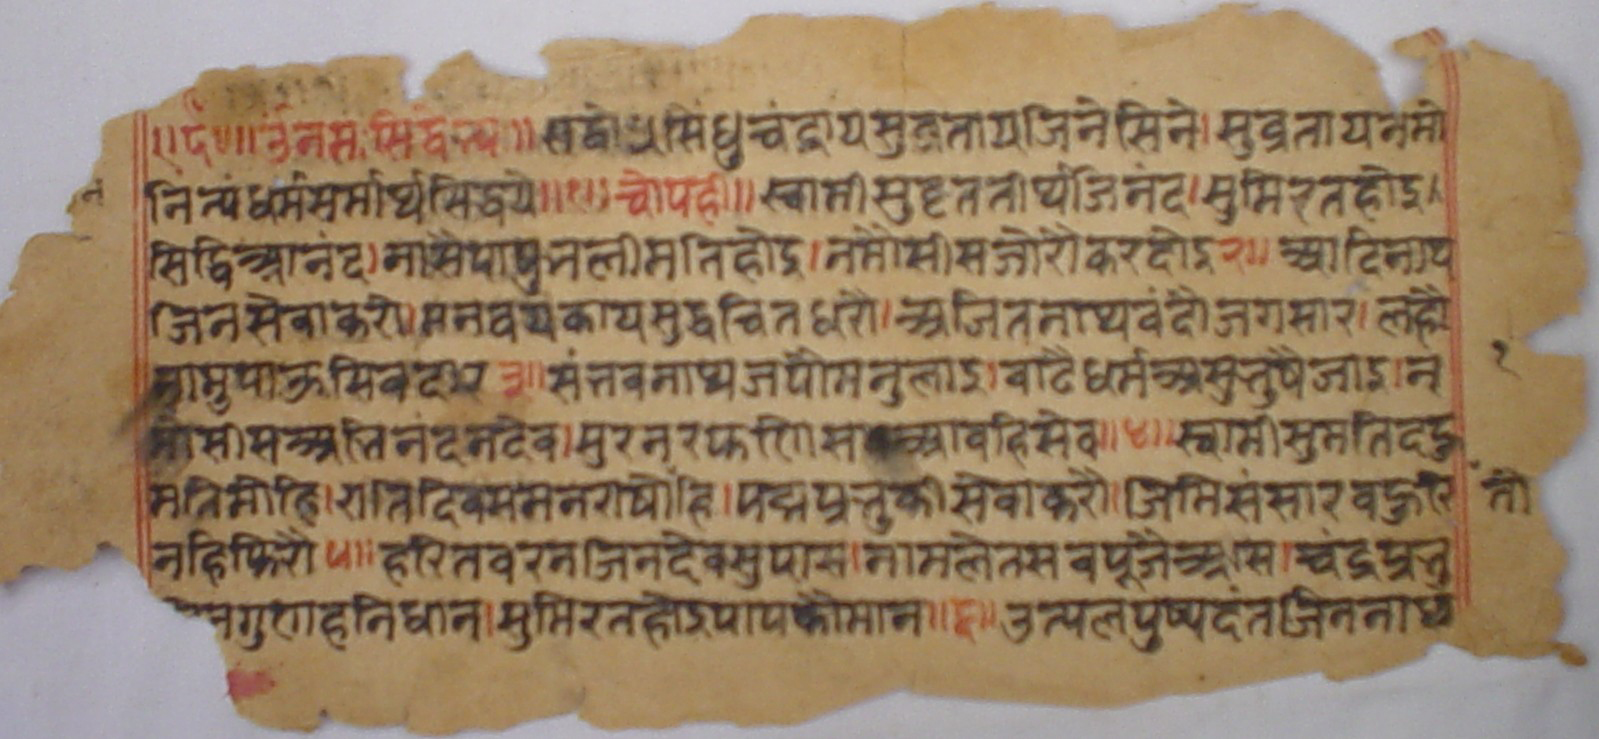 ॥ ॐनमः सिद्धेभ्यः॥ सद्बोधसिंधुचंद्राय सुव्रताय जिनेसिने। सुव्रताय नमो
नित्यं धर्मसर्मार्थसिद्धये॥१॥ चौपही॥ स्वामी सुव्रत तीर्थ जिनंद। सुमिरत होइ
सिद्धि आनंद। नासै पाप भली मति होइ। नमौ सीस जोरौ कर दोइ २॥ आदिनाथ
जिन सेवा करौ। मन वय काय सुद्ध चित धरौ। अजितनाथ वंदौ जगसार। लहौ
पाऊ सिवदार ३॥ संभवनाथ जपौ मनु लाइ। वाढै धर्म असुभु षै जाइ। न
मौ सीस अभिनंदन देव। सुर नर फणि आवहि सेव॥४॥ स्वामी सुमति देहु
मति मोहि। राति दिवस मन राषौ तोहि। पद्मप्रभु की सेवा करौ। जिमि संसार वहुरि
नहि फिरौ ५॥ हरित वरन जिनदेव सुपास। नाम लेत सव पूजै आस। चंद्रप्रभु
गुणह निधान। सुमिरत होइ पाप कौ मान॥६॥ उत्पल पुष्पदंत जिननाथ
१